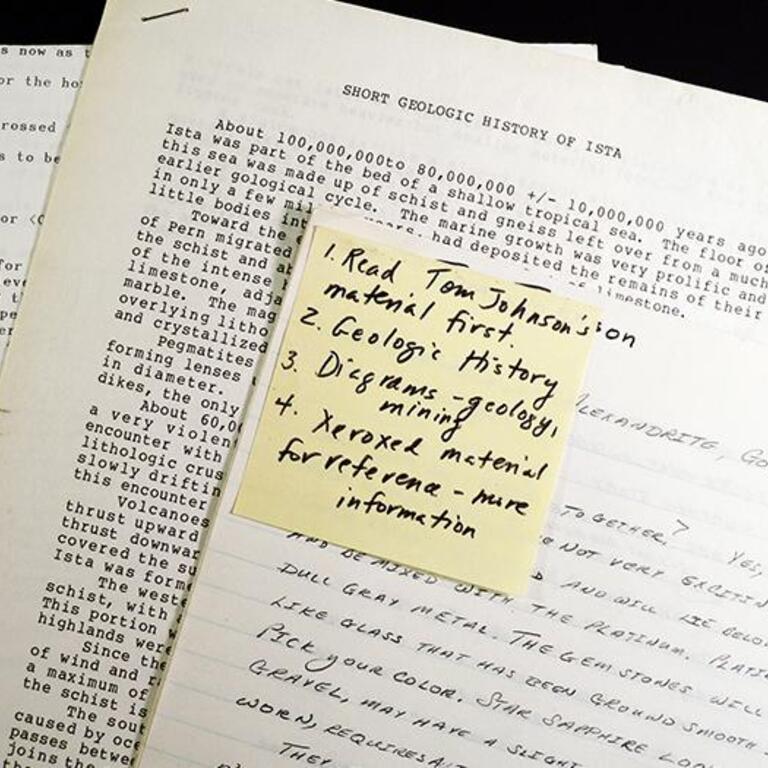 s now as t
or the ho
rossed
s to be
or <C
for
eve
SHORT GEOLOGIC HISTORY OF ISTA
About 100,000,000to 80,000,000 +/- 10,000,000 years ago
Ista was part of the bed of a shallow tropical sea. The floor of
this sea was made up of schist and gneiss left over from a much
earlier gological cycle. The marine growth was very prolific and
in only a few mil years, had deposited the remains of their
little bodies int of limestone.
Toward the e
of Pern migrated
the schist and ab
of the intense h
limestone, adja
marble. The mag
overlying litho
and crystallized
Pegmatites
forming lenses
in diameter.
dikes, the only
About 60,0
a very violen
encounter with
lithologic crus
slowly driftin
this encounter
Volcanoes
thrust upward
thrust downwar
covered the su
Ista was form
The weste
schist, with
This portion w
highlands were
Since the
of wind and r
a maximum of
the schist is
The sout
caused by oce
passes betwee
joins the
1. Read Tom Johnson's on
material first.
2. Geologic History
3. Diagrams - geology,
mining
4. Xeroxed material
for reference - more
information
ALEXANDRITE, GO
TOGETHER? YES,
E NOT VERY EXCITIN
D AND WILL LIE BELO
AND BE MIXED WITH THE PLATINUM. PLATI
DULL GRAY METAL. THE GEM STONES WILL
LIKE GLASS THAT HAS BEEN GROUND SMOOTH
PICK YOUR COLOR. STAR SAPPHIRE LOO
GRAVEL, MAY HAVE A SLIGHT
WORN, REQUIRES A
THEY